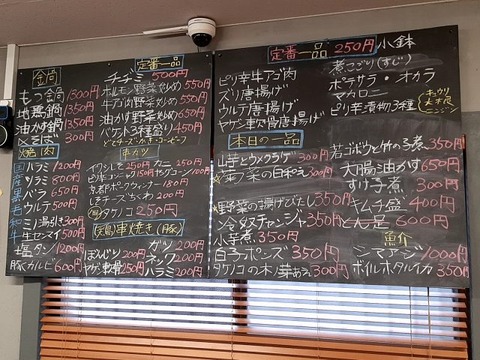 定番一品
チヂミ 500円
ホルモン野菜炒め 550円
牛アゴ肉野菜炒め 550円
油かす野菜炒め 650円
バケット3種盛り 450円
金同
もつ金同 1300円
地鶏鍋 1350円
油かす鍋 1350円
〆そば 300円
焼肉
国産黒毛和牛
ハラミ 1200円
バラ 650円
ウルテ 500円
ミノ湯引き 300円
キモ
塩タン 1200円
豚カルビ 600円
串カツ
カニ 250円
しそチーズちくわ 200円
タケノコ 250円
串焼き(豚)
ぼんじり 200円
ヤゲン軟骨 250円
ガツ 200円
ネック 200円
ハラミ 200円
定番一品 250円 小鉢
ピリ辛牛アゴ肉
ズリ唐揚げ
ウルテ唐揚げ
ヤゲン軟骨唐揚げ
煮こごり(すじ)
ポテサラ・オカラ
マカロニ
ピリ辛漬物3種
キュウリ
大根
ニンジン
本日の一品
山芋とウメクラゲ 300円
菊菜の白和え 300円
野菜の揚げびたし 350円
チャンジャ 350円
小芋煮 350円
白子ポンズ 350円
タケノコの木ノ芽あえ 300円
若ゴボウと竹の子煮 350円
大腸油かす 650円
すり子煮 300円
キムチ盛 400円
とん足 600円
魚介
シマアジ 1000円
ボイルホタルイカ 350円